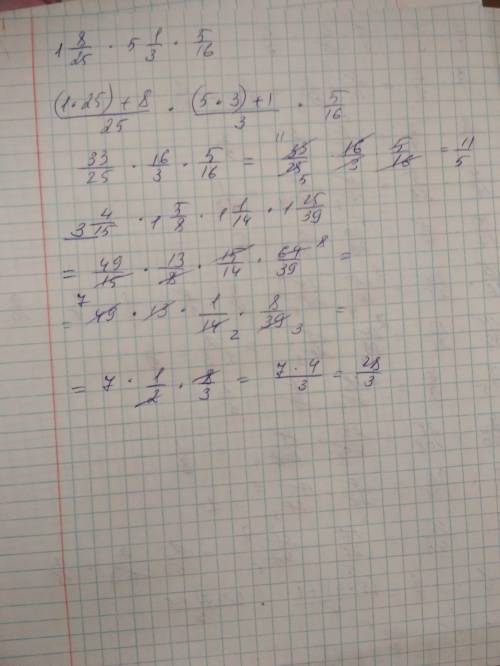 1 8/25 · 5 1/3 · 5/16
(1·25)+8/25 · (5·3)+1/3 · 5/16
33/25 · 16/3 · 5/16 = 11 33/25 5 · 16/3 5/16 = 11/5
3 4/15 · 1 5/8 · 1 1/14 · 1 25/39
= 49/15 · 13/8 · 15/14 · 64/39 8 =
= 7 49 · 13 · 1/14 2 · 8/39 3 =
= 7 · 1/2 · 8/3 = 7·4/3 = 28/3